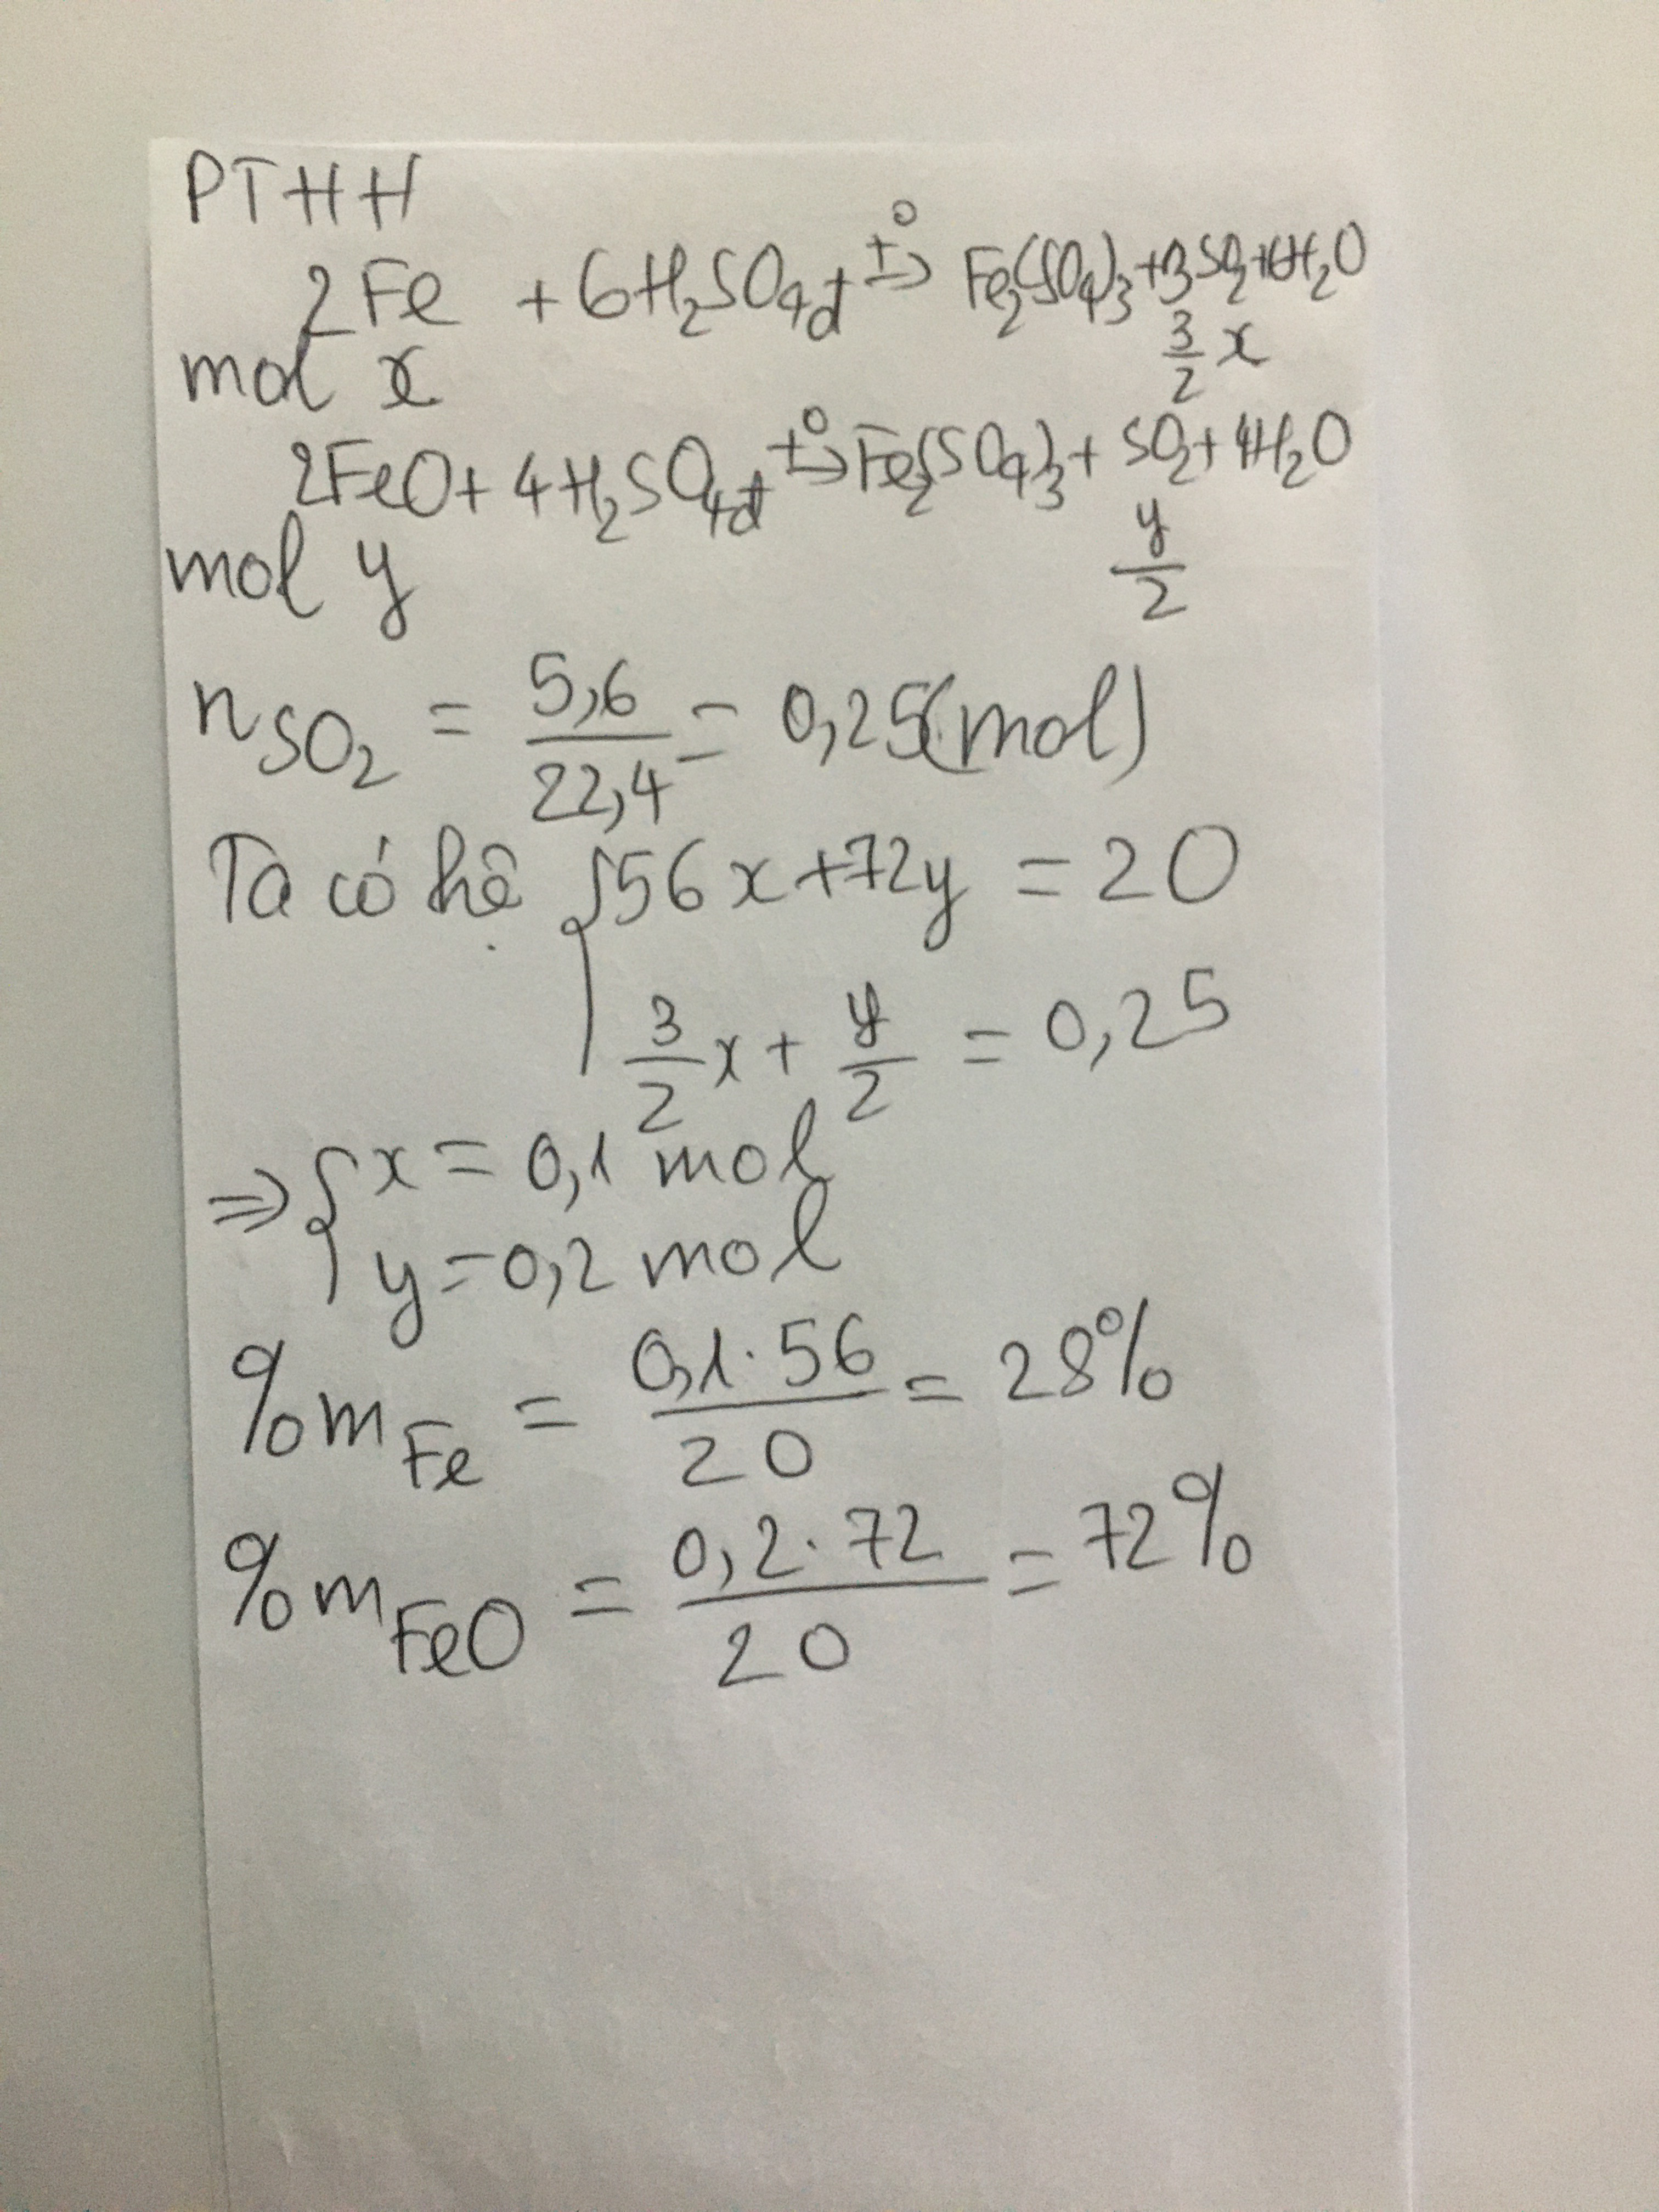 PTHH
2Fe + 6H₂SO₄đ t°→ Fe₂(SO₄)₃ + 3SO₂ + 6H₂O
mol x 3/2 x
2FeO + 4H₂SO₄đ t°→ Fe₂(SO₄)₃ + SO₂ + 4H₂O
mol y y/2
nSO₂ = 5,6/22,4 = 0,25(mol)
Ta có hệ { 56x + 72y = 20
3/2 x + y/2 = 0,25
⇒ { x = 0,1 mol
y = 0,2 mol
%mFe = 0,1.56/20 = 28%
%mFeO = 0,2.72/20 = 72%